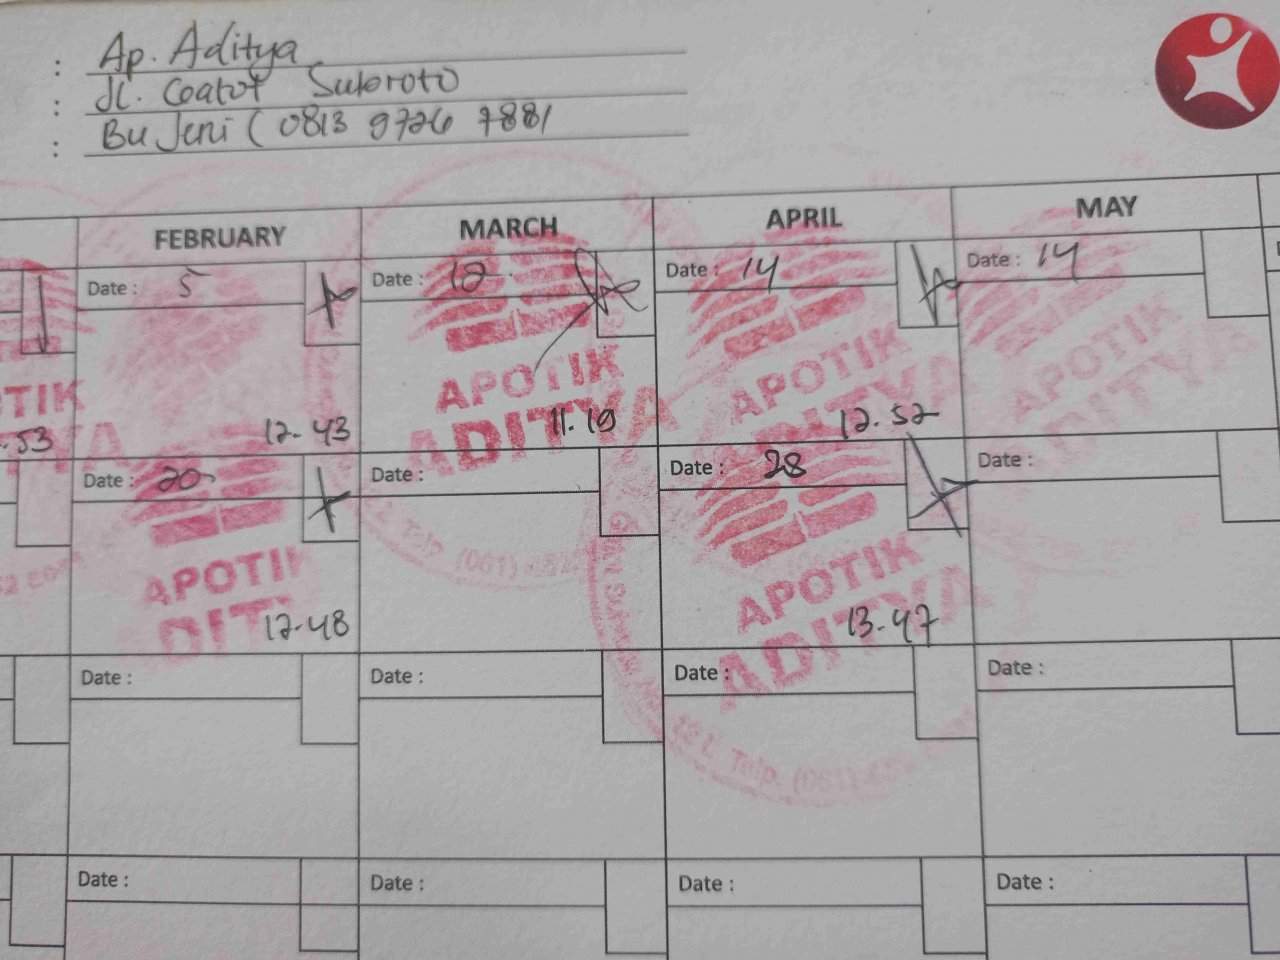 : Ap. Aditya
: Jl. Gatot Subroto
: Bu Jeni (0813 9726 7881
FEBRUARY MARCH APRIL MAY
Date : 5 Date : 12 Date : 14 Date : 14
APOTIK ADITYA
APOTIK ADITYA
APOTIK ADITYA
.53 12-43 11.19 12.52
Date : 20 Date : Date : 28 Date :
APOTIK
APOTIK ADITYA
12-48 13-47
Telp. (061)
Date : Date : Date : Date :
Telp. (061)
Date : Date : Date : Date :